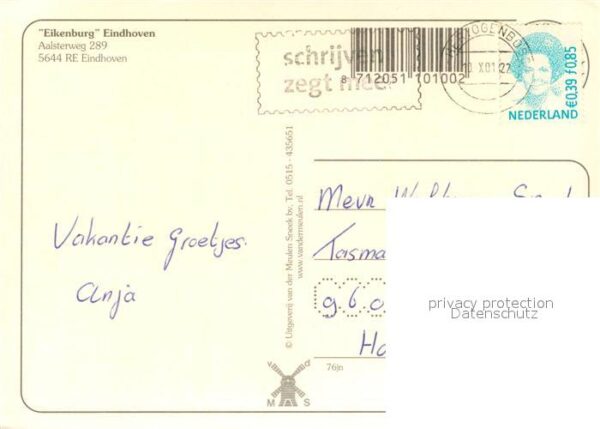 "Eikenburg" Eindhoven
Aalsterweg 289
5644 RE Eindhoven
schrijven
zegt meer
8 712051 101002
X.01
NEDERLAND
€0,39 f0,85
© Uitgeverij van der Meulen Sneek bv. Tel. 0515 - 435651
www.vandermeulen.nl
Vakantie Groetjes.
Anja
Mevr
Tasma
9601
Ho
privacy protection
Datenschutz
76jn
v d
M S